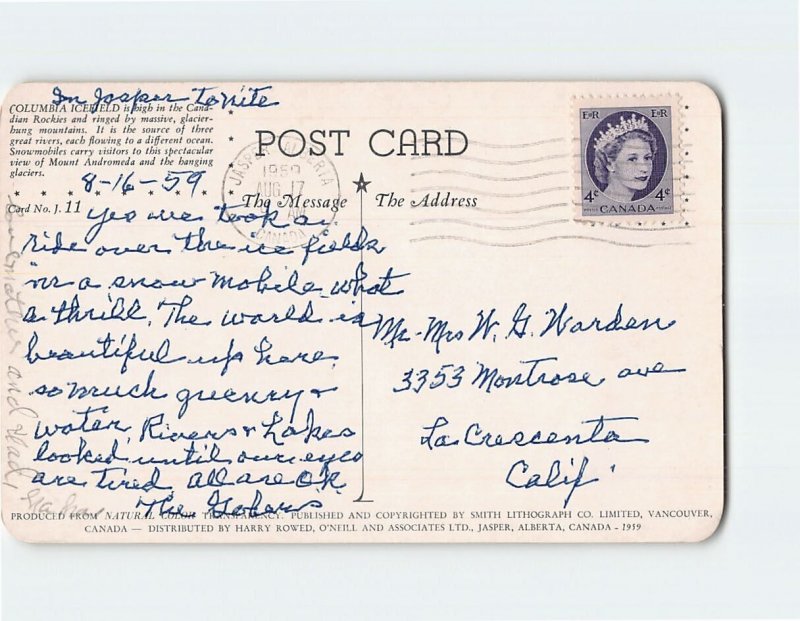 In Jasper to nite
COLUMBIA ICEFIELD is high in the Cana-
dian Rockies and ringed by massive, glacier-
hung mountains. It is the source of three
great rivers, each flowing to a different ocean.
Snowmobiles carry visitors to this spectacular
view of Mount Andromeda and the hanging
glaciers.
8-16-59
Card No. J. 11
POST CARD
The Message
The Address
JASPER ALBERTA
1959
AUG 17
AM
CANADA
E R
E R
4¢
4¢
CANADA
yes we took a
ride over the ice fields
in a snow mobile, what
a thrill. The world is
beautiful up here.
so much greenry &
water, Rivers & Lakes
looked until our eyes
are tired all are O.K.
The
Mr. Mrs W. G. Warden
3353 Montrose ave
La Crescenta
Calif.
and dad,
PRODUCED FROM NATURAL COLOR TRANSPARENCY. PUBLISHED AND COPYRIGHTED BY SMITH LITHOGRAPH CO. LIMITED, VANCOUVER,
CANADA — DISTRIBUTED BY HARRY ROWED, O'NEILL AND ASSOCIATES LTD., JASPER, ALBERTA, CANADA - 1959